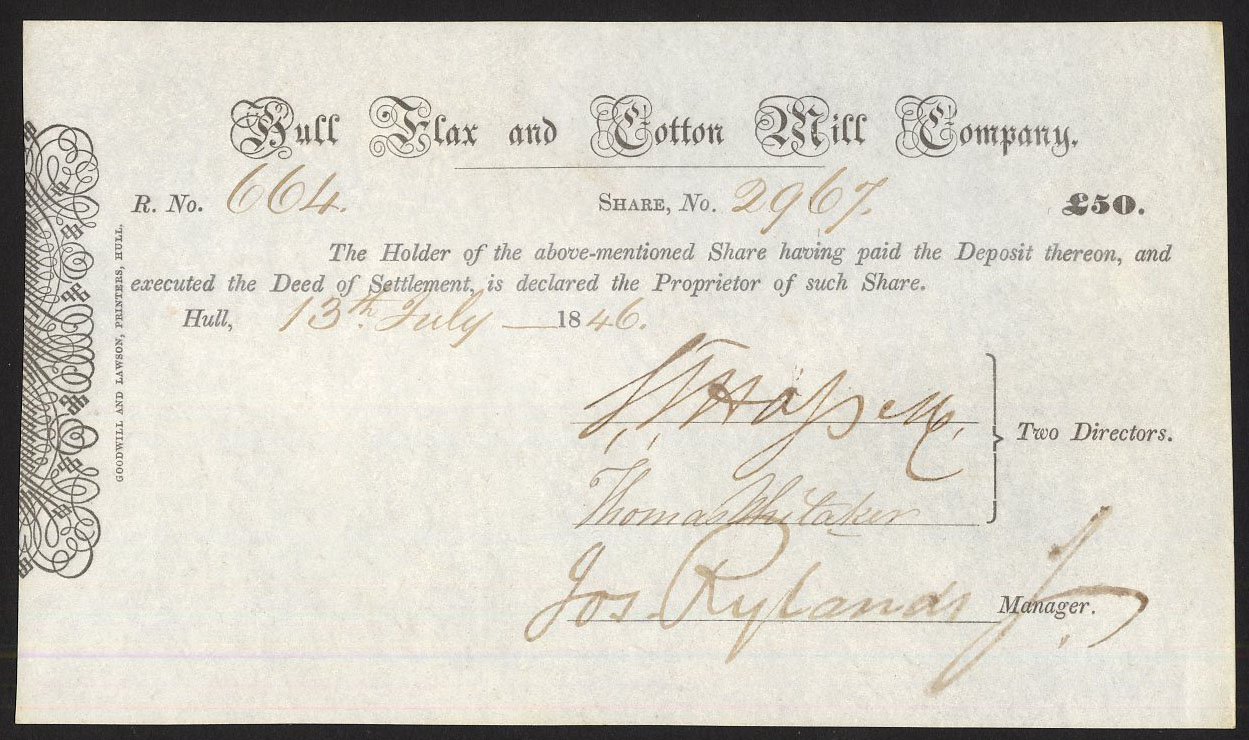 Hull Flax and Cotton Mill Company.
R. No. 664. SHARE, No. 2967. £50.
The Holder of the above-mentioned Share having paid the Deposit thereon, and
executed the Deed of Settlement, is declared the Proprietor of such Share.
Hull, 13th. July 1846.
Two Directors.
Thomas Whitaker
Jos. Rylands Jr. Manager.
GOODWILL AND LAWSON, PRINTERS, HULL.